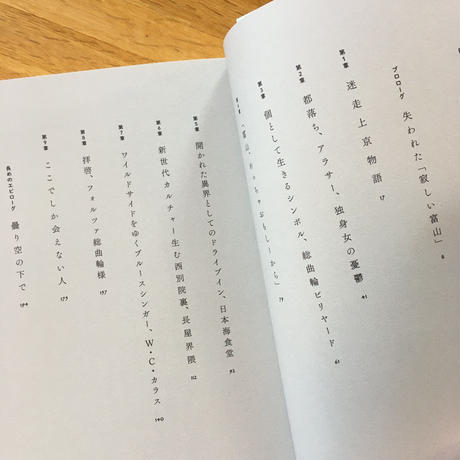 プロローグ 失われた「寂しい富山」 6
第1章 迷走上京物語 17
第2章 都落ち、アラサー、独身女の憂鬱 41
第3章 個として生きるシンボル、総曲輪ビリヤード 61
「富山、めっちゃおもしーから」 79
第5章 開かれた異界としてのドライブイン、日本海食堂 92
第6章 新世代カルチャー生む西別院裏、長屋界隈 112
第7章 ワイルドサイドをゆくブルースシンガー、W・C・カラス 140
第8章 拝啓、フォルツァ総曲輪様 157
第9章 ここでしか会えない人 175
長めのエピローグ 曇り空の下で 194